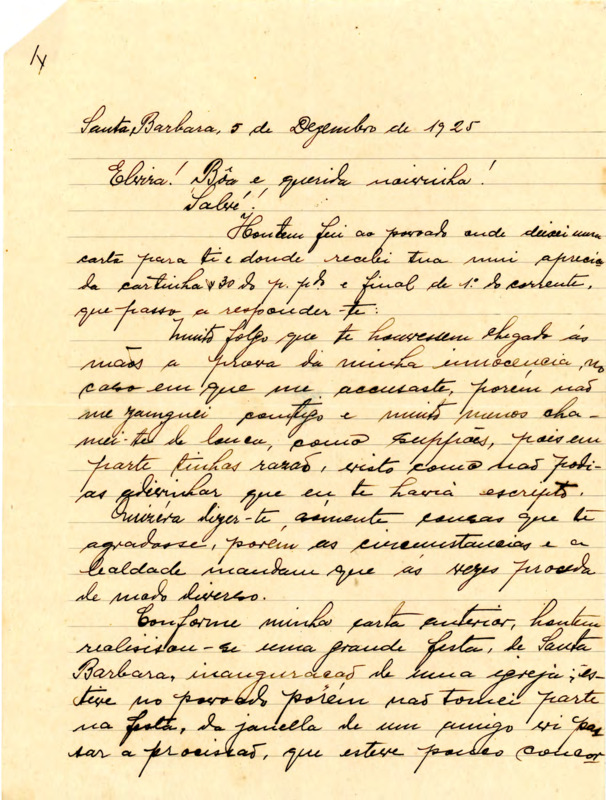 1/
Santa Barbara, 5 de Dezembro de 1925
Elvira! Bôa e querida noivinha!
Salvé!
Hontem fui ao povoado onde deixei uma
carta para ti e donde recebi tua mui aprecia
da cartinha de 30 do p. pdo e final de 1º do corrente,
que passo a responder-te:
Muito folgo que te houvessem chegado ás
mãos a prova da minha innocencia, no
caso em que me accusaste, porém não
me zanguei comtigo e muito menos cha-
mei-te de louca, como suppões, pois em
parte tinhas razão, visto como não podi-
as adivinhar que eu te havia escripto.
Quizéra dizer-te sómente cousas que te
agradasse, porém, as circumstancias e a
lealdade mandam que ás vezes proceda
de modo diverso.
Conforme minha carta anterior, hontem
realisou-se uma grande festa, de Santa
Barbara, inauguração de uma igreja; es-
tive no povoado porém não tomei parte
na festa, da janella de um amigo vi pas
sar a procissão, que esteve pouco concor